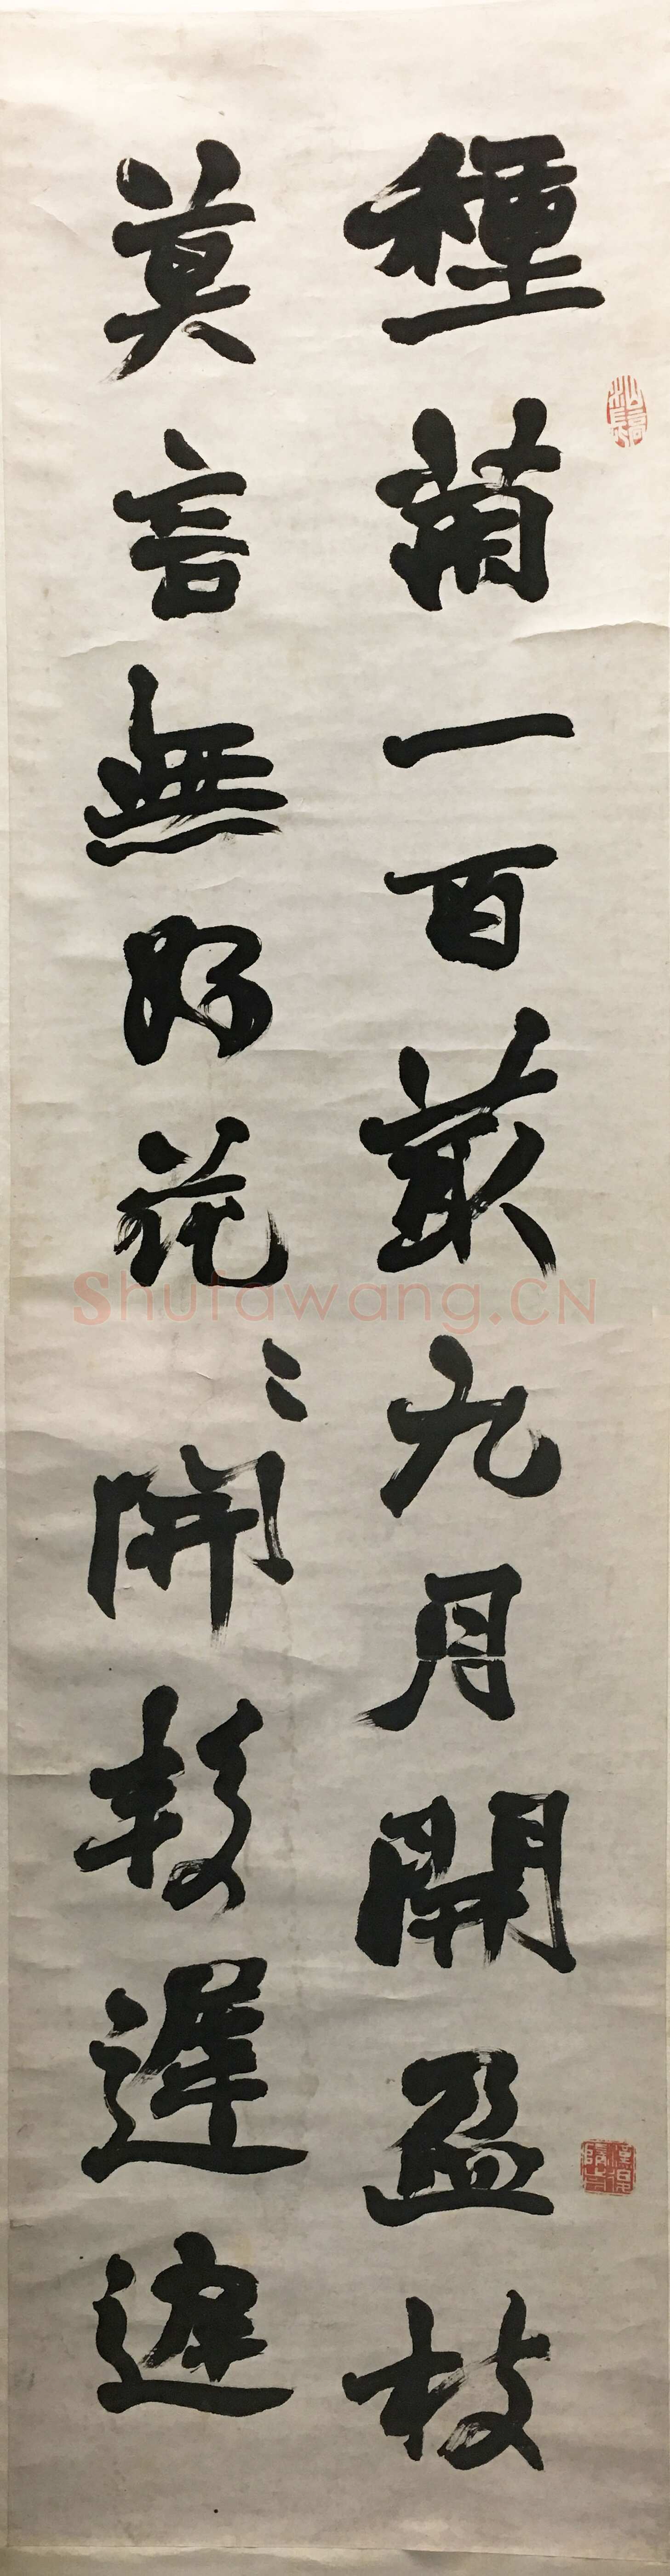 種菊一百菆九月開盈枝
莫言無好花〻開較遲遲
Shufawang.CN